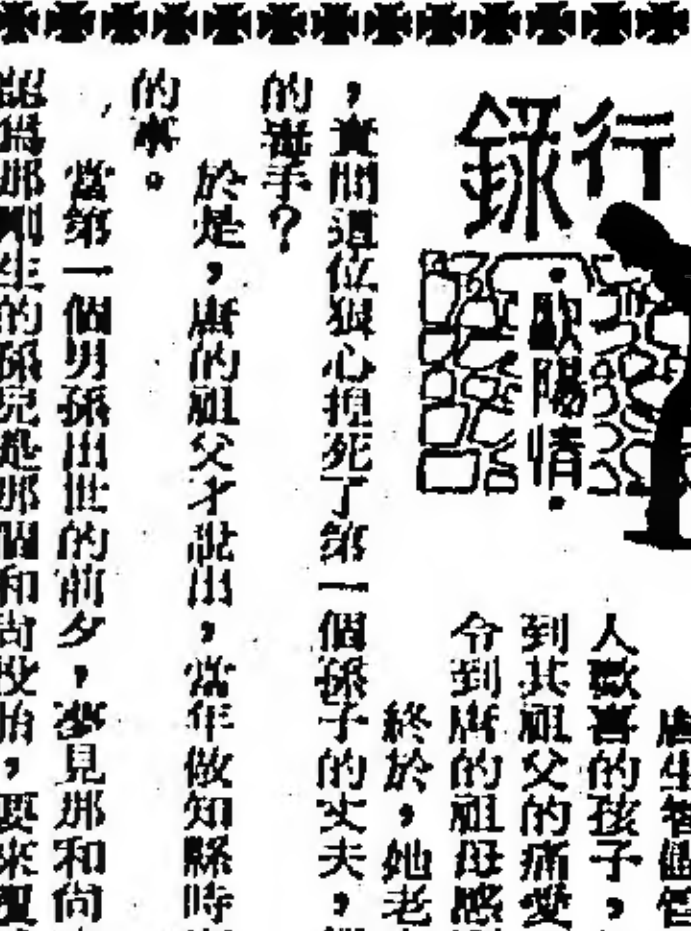 行錄
·歐陽情·
唐生智
人歡喜的孩子，
到其祖父的痛愛
令到唐的祖母感
終於，她老
，實問這位狠心揑死了第一個孫子的丈夫，
的毒手？
於是，唐的祖父才說出，當年做知縣時
的事。
當第一個男孫出世的前夕，夢見那和尚
認為那剛生的孫兒是那個和尚投胎，要來